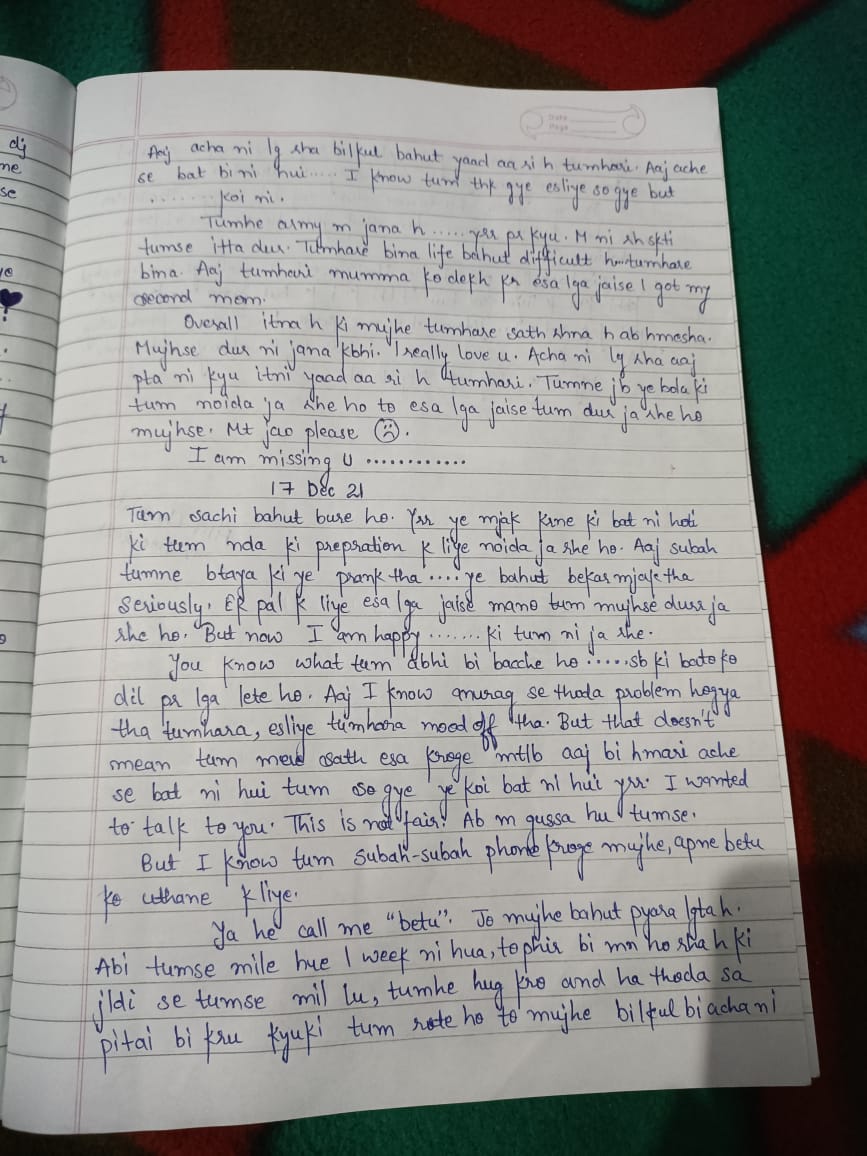 dj
me
se
Date
Page
Aaj acha ni lg rha bilkul bahut yaad aa ri h tumhari. Aaj ache
se bat bi ni hui..... I know tum thk gye esliye so gye but
........ Koi ni.
Tumhe army m jana h ...... yrr pr kyu. M ni rh skti
tumse itta dur. Tumhare bina life bahut difficult h tumhare
bina. Aaj tumhari mumma ko dekh kr esa lga jaise I got my
second mom.
Overall itna h ki mujhe tumhare sath rhna h ab hmesha.
Mujhse dur ni jana kbhi. I really love u. Acha ni lg rha aaj
pta ni kyu itni yaad aa ri h tumhari. Tumne jb ye bola ki
tum noida ja rhe ho to esa lga jaise tum dur ja rhe ho
mujhse. Mt jao please ☹.
I am missing U .............
17 Dec 21
Tum sachi bahut bure ho. Yrr ye mjak krne ki bat ni hoti
ki tum nda ki prepration k liye noida ja rhe ho. Aaj subah
tumne btaya ki ye prank tha .... ye bahut bekar mjak tha
seriously. Ek pal k liye esa lga jaise mano tum mujhse durr ja
rhe ho. But now I am happy ....... ki tum ni ja rhe.
You know what tum abhi bi bacche ho ...... sb ki bato ko
dil pr lga lete ho. Aaj I know anurag se thoda problem hogya
tha tumhara, esliye tumhara mood off tha. But that doesn't
mean tum mere sath esa kroge mtlb aaj bi hmari ache
se bat ni hui tum so gye ye koi bat ni hui yrr. I wanted
to talk to you. This is not fair! Ab m gussa hu tumse.
But I know tum subah-subah phone kroge mujhe, apne betu
ko uthane k liye.
Ya he call me "betu". Jo mujhe bahut pyara lgta h.
Abi tumse mile hue 1 week ni hua, to phir bi mn ho rha h ki
jldi se tumse mil lu, tumhe hug kro and ha thoda sa
pitai bi kru kyuki tum rote ho to mujhe bilkul bi acha ni